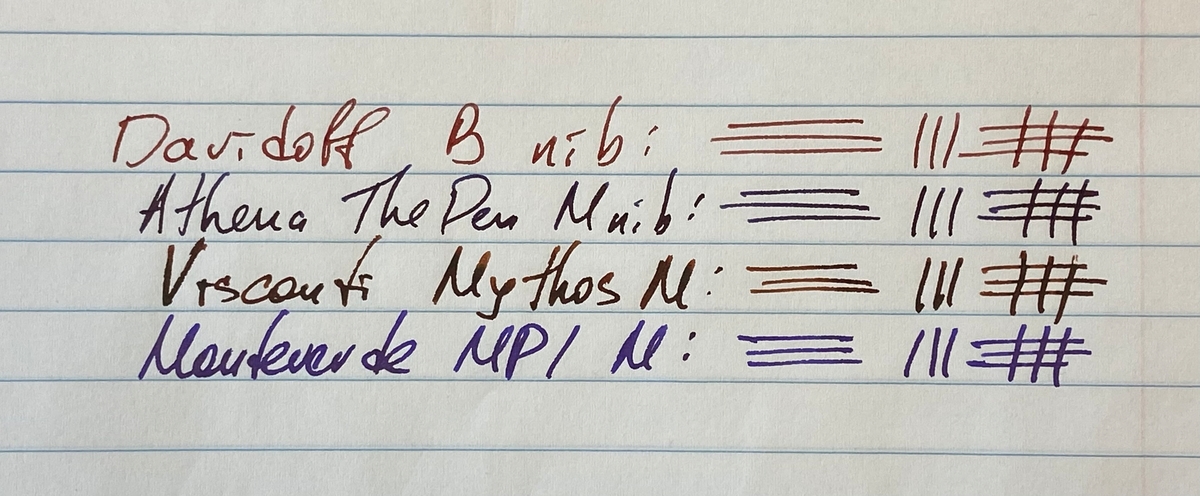 Davidoff B nib:
Athena The Pen M nib:
Visconti Mythos M:
Monteverde MP1 M: